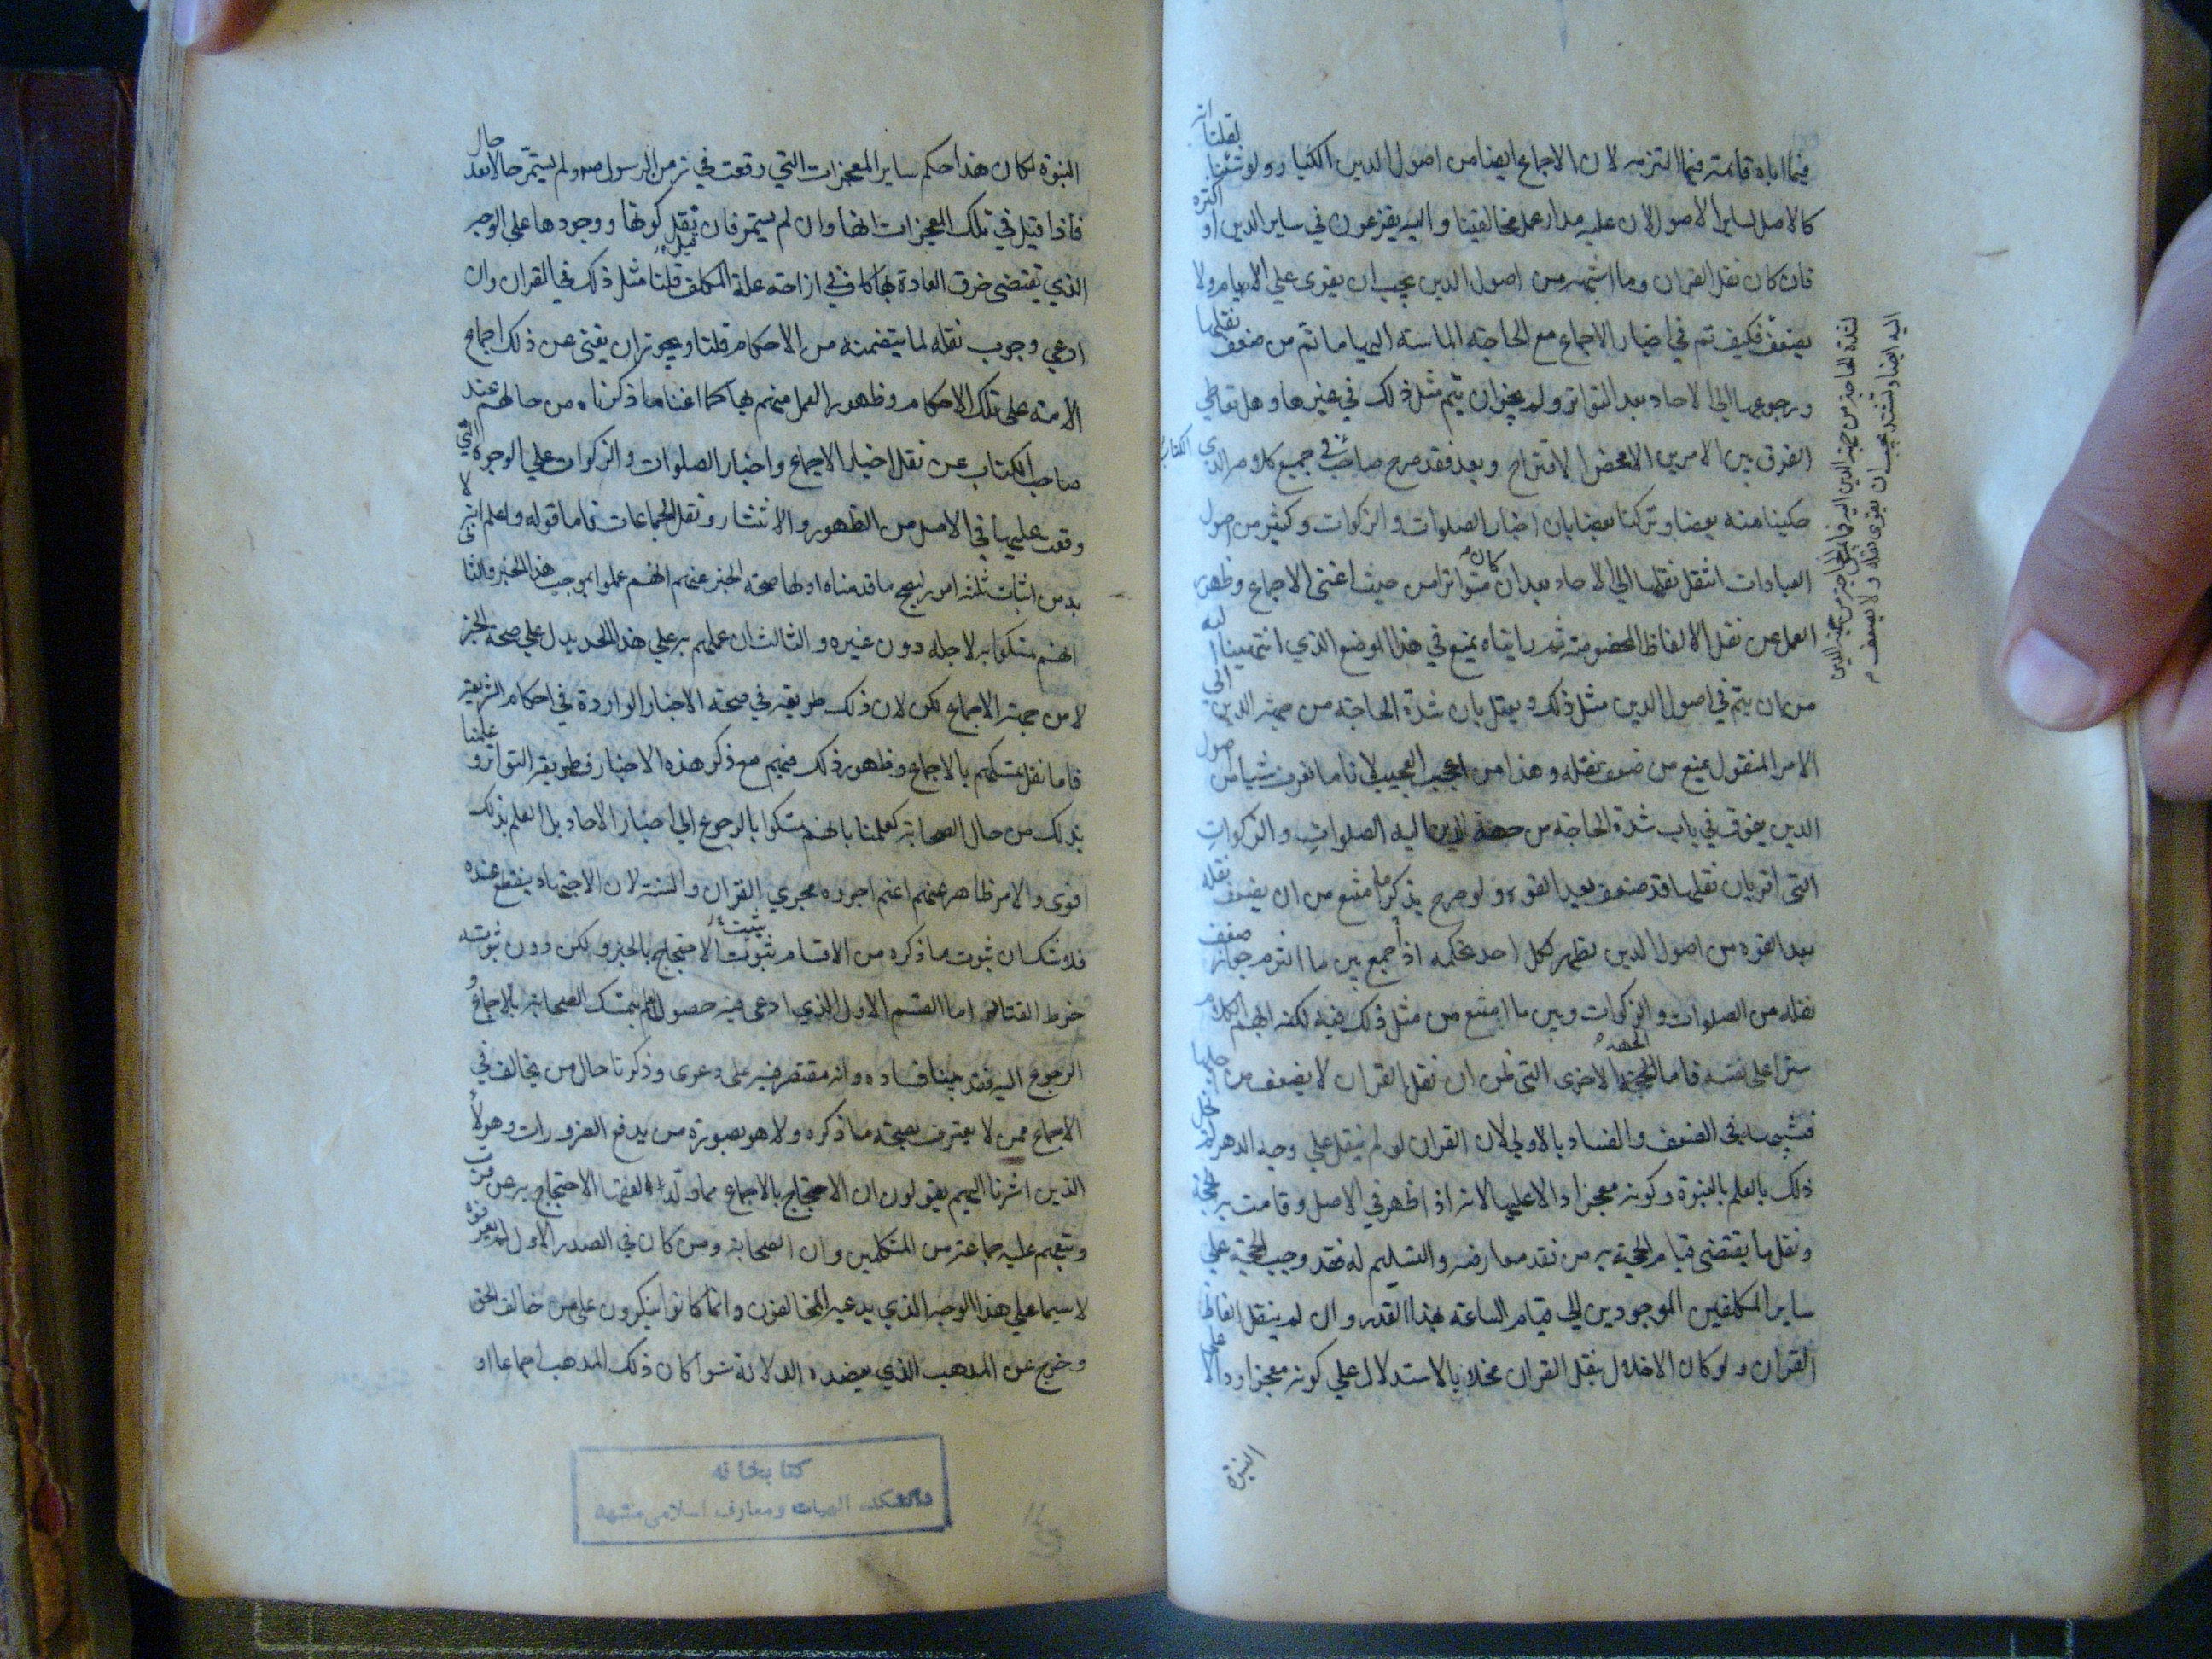 فيما اباه قائمة فيما التزمه لان الاجماع ايضا من اصول الدين الكبار ولو شئنا لقلنا انه
كالاصل لساير الاصول لان عليه مدار عمل مخالفينا واليه يفزعون في ساير الدين او اكثره
فان كان نقل القران وما اشبهه من اصول الدين يجب ان يقوى على الايام ولا
يضعف فكيف تم في اخبار الاجماع مع الحاجة الماسة اليها ما تم من ضعف نقلها
ورجوعها الى الاحاد بعد التواتر ولم يجز ان يتم مثل ذلك في غيرها وهل تعاطي
الفرق بين الامرين الا محض الاقتراح وبعد فقد صرح صاحب الكتاب في جميع كلامه الذي
حكينا منه بعضا وتركنا بعضا بان اخبار الصلوات والزكوات وكثير من اصول
العبادات انتقل نقلها الى الاحاد بعد ان كان متواترا من حيث اغنى الاجماع وظهور
العمل عن نقل الالفاظ المخصوصة ثم رايناه يمنع في هذا الموضع الذي انتهينا اليه
من ان يتم في اصول الدين مثل ذلك ويعتل بان شدة الحاجة من جهة الدين الى
الامر المنقول يمنع من ضعف نقله وهذا من اعجب العجيب لانا ما نعرف شيا من اصول
الدين يفوق في باب شدة الحاجة من جهة الدين اليه الصلوات والزكوات
التي اقر بان نقلها قد ضعف بعد القوه ولو صرح بذكر ما منع من ان يضعف نقله
بعد القوه من اصول الدين لظهر لكل احد تحكمه اذ اجمع بين ما التزم جواز ضعف
نقله من الصلوات والزكوات وبين ما امتنع من مثل ذلك فيه لكنه ابهم الكلام
سترا على نفسه فاما الجهة الاخرى التي ظن ان نقل القران لا يضعف من جهتها
فشبيهة في الضعف والفساد بالاولى لان القران لو لم ينقل على وجه الدهر لم يخل
ذلك بالعلم بالنبوة وكونه معجزا دالا عليها لانه اذا ظهر في الاصل وقامت به الحجة
ونقل ما يقتضى قيام الحجة به من فقد معارضه والتسليم له فقد وجب الحجة على
ساير المكلفين الموجودين الى قيام الساعة بهذا القدر وان لم ينقل الفاظ
القران ولو كان الاخلال بنقل القران مخلا بالاستدلال على كونه معجزا ودالا على
النبوة
لشدة الحاجة من جهة الدين اليه
اليه ايضا وتشتد يجب ان يقوى نقله ولا يضعف
النبوة لكان هذا حكم ساير المعجزات التي وقعت في زمن الرسول صم ولم يستمر حالا بعد حال
فاذا قيل في تلك المعجزات انها وان لم يستمر فان نقل كونها ووجودها على الوجه
الذي يقتضى خرق العادة بها كاف في ازاحة علة المكلف قلنا مثل ذلك في القران وان
ادعي وجوب نقله لما يتضمنه من الاحكام قلنا ويجوز ان يغنى عن ذلك اجماع
الامة على تلك الاحكام وظهور العمل منهم بها كما اغنا ما ذكرناه من حالهم عند
صاحب الكتاب عن نقل اخبار الاجماع واخبار الصلوات والزكوات على الوجوه التي
وقعت عليها في الاصل من الظهور والانتشار ونقل الجماعات فاما قوله واعلم انه لا
بد من اثبات ثلثه امور ليصح ما قدمناه اولها صحة الخبر عنهم انهم عملوا بموجب هذا الخبر والثا
انهم تمسكوا به لاجله دون غيره والثالث ان عملهم به على هذا الحد يدل على صحة الخبر
لا من جهة الاجماع لكن لان ذلك طريقه في صحة الاخبار الواردة في احكام الشريعة
فاما نقل تمسكهم بالاجماع وظهور ذلك فيهم مع ذكر هذه الاخبار فطريقه التواتر و علمنا
بذلك من حال الصحابة كعلمنا بانهم تمسكوا بالرجوع الى اخبار الاحاد بل العلم بذلك
اقوى والامر ظاهر عنهم انهم اجروه مجرى القران والسنة لان الاجتهاد ينقطع عنده
فلا شك ان ثبوت ما ذكره من الاقسام يثبت الاحتجاج بالخبر ولكن دون ثبوته
خرط القتاد اما القسم الاول الذي ادعى فيه حصول العلم بتمسك الصحابة بالاجماع و
الرجوع اليه فقد بينا فساده وانه مقتصر فيه على دعوى وذكرنا حال من يخالف في
الاجماع فمن لا يعترف بصحة ما ذكره ولا هو بصورة من يدفع الضرورات وهولا
الذين اشرنا اليهم يقولون ان الاحتجاج بالاجماع مما ولد الفقها الاحتجاج به عن قرب
وتبعهم عليه جماعة من المتكلمين وان الصحابة ومن كان في الصدر الاول لم يعرفوه
لا سيما على هذا الوجه الذي يدعيه المخالفون وانما كانوا ينكرون على من خالف الحق
وخرج عن المذهب الذي يعضده الدلالة سوا كان ذلك المذهب اجماعا او
كتابخانه
دانشكده الهيات ومعارف اسلامى مشهد